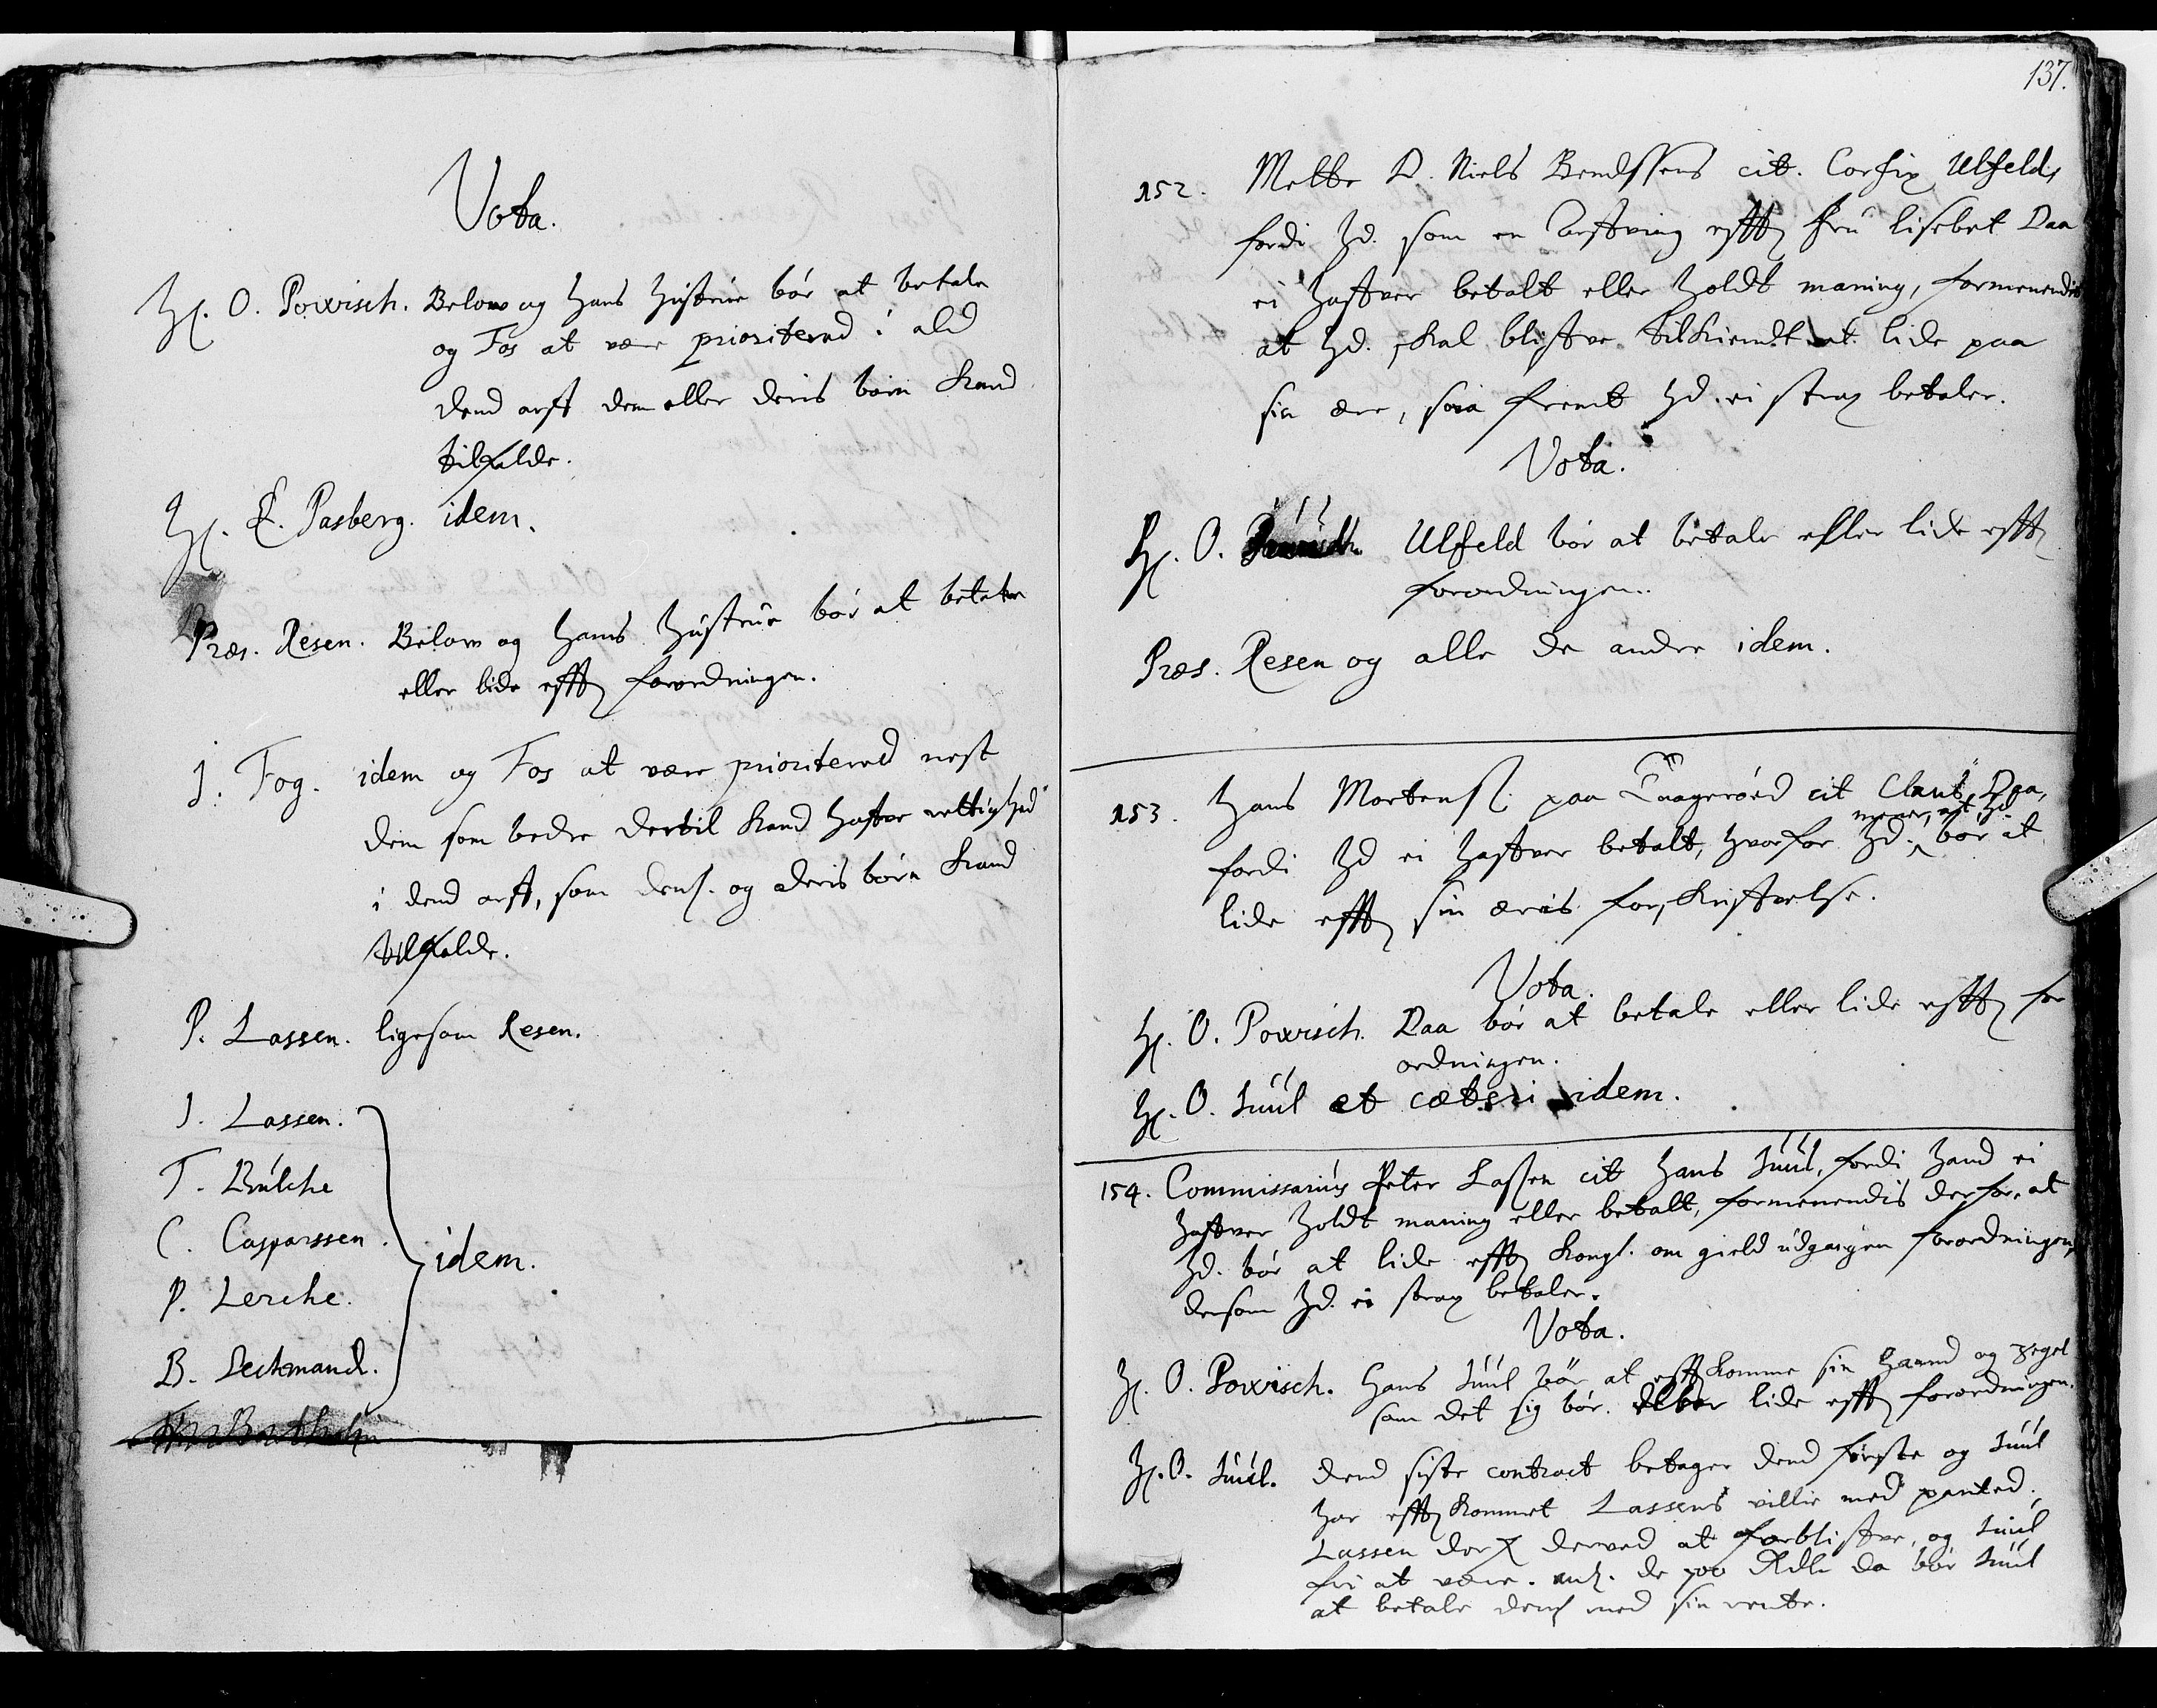 Vota.
H. O. Powisch. Below og hans hustrue bør at betale
og Fos at være prioritered i ald
dend arft dem eller deris børn kand
tilfalde.
H. E. Pasberg. idem.
Præs. Resen. Below og hans hustrue bør at betale
eller lide efft forordningen.
J. Fog. idem og Fos at være prioritered nest
dem som bedre dertil kand hafve rettighed
i dend arft, som dem. og deris børn kand
tilfalde.
P. Lassen. ligesom Resen.
J. Lassen.
T. Bülche
C. Casparssen.
P. Lerche.
B. Leckmand.
idem.
137.
152. Mette D. Niels Bendssens cit. Corfix Ulfeld,
fordi hd. som en arfving efft fru lisebet Daa
ei hafver betalt eller holdt maning, formenendis
at hd. skal blifve tilkiendt at lide paa
sin ære, saa fremt hd. ei strax betaler.
Vota.
H. O. Ulfeld bør at betale eller lide efft
forordningen.
Præs. Resen og alle de andre idem.
153. Hans Mortens. paa cit Claus Daa,
mener, at hd.
fordi hd ei hafver betalt, hvorfor hd. bør at
lide efft sin æris forskrifvelse.
Vota.
H. O. Powisch. Daa bør at betale eller lide efft for
ordningen.
H. O. Juul et cæteri idem.
154. Commissarius Peter Lassen cit Hans Juul, fordi hand ei
hafver holdt maning eller betalt, formenendis derfor, at
hd. bør at lide efft Kongl. om gield udgangen forordningen,
dersom hd. ei strax betaler.
Vota.
H. O. Powisch. Hans Juul bør at efftkomme sin haand og zegel
som det sig bør. eller lide efft forordningen.
H. O. Juul. dend siste contract betager dend første og Juul
har efftkommet Lassens villie med panted.
Lassen derved at forblifve, og Juul
fri at være. de 700 Rdlr da bør Juul
at betale dem med sin rente.